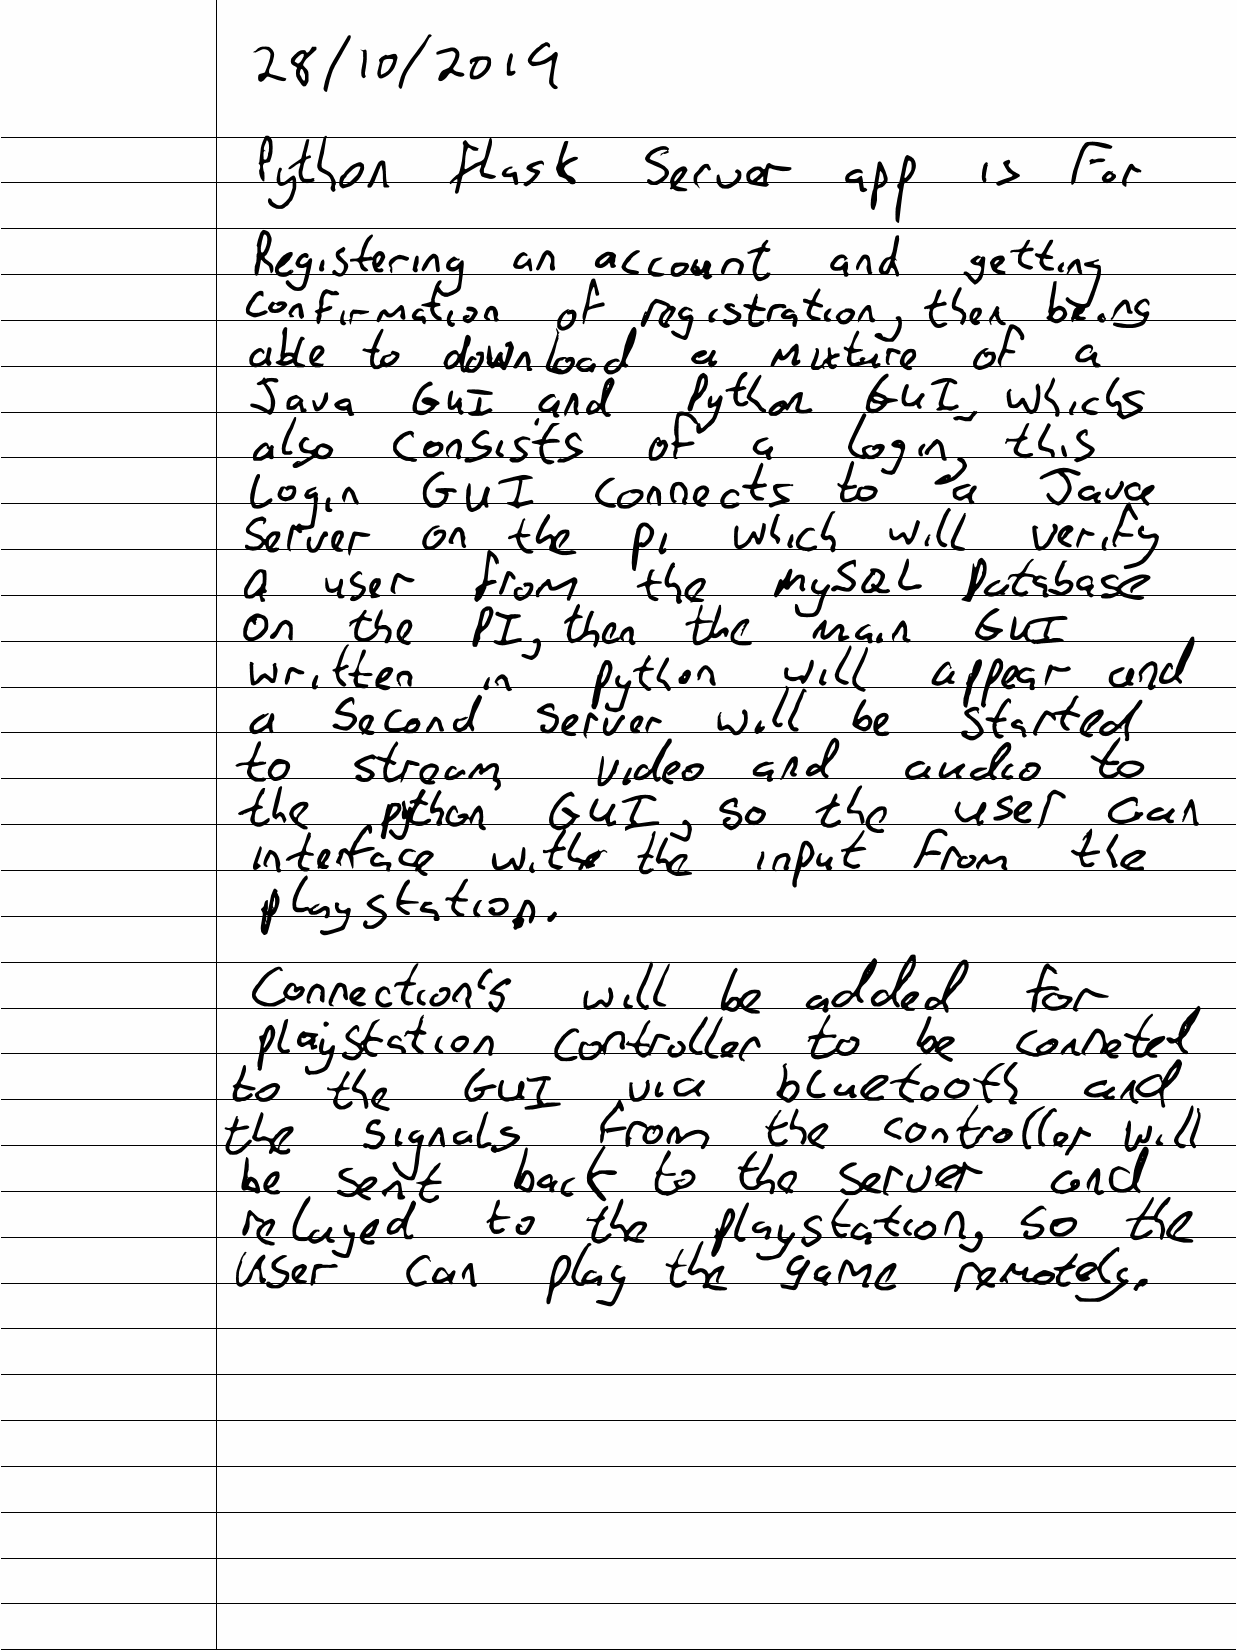 28/10/2019
Python flask Server app is For
Registering an account and getting
confirmation of registration, then being
able to download a mixture of a
Java GUI and Python GUI, whichs
also consists of a login, this
Login GUI connects to a Java
Server on the pi which will verify
a user from the MySQL Database
on the PI, then the main GUI
written in python will appear and
a second server will be started
to stream video and audio to
the python GUI, so the user can
interface with the input from the
playstation.
Connection's will be added for
playstation controller to be conneted
to the GUI via bluetooth and
the signals from the controller will
be sent back to the server and
relayed to the playstation, so the
user can play the game remotely.